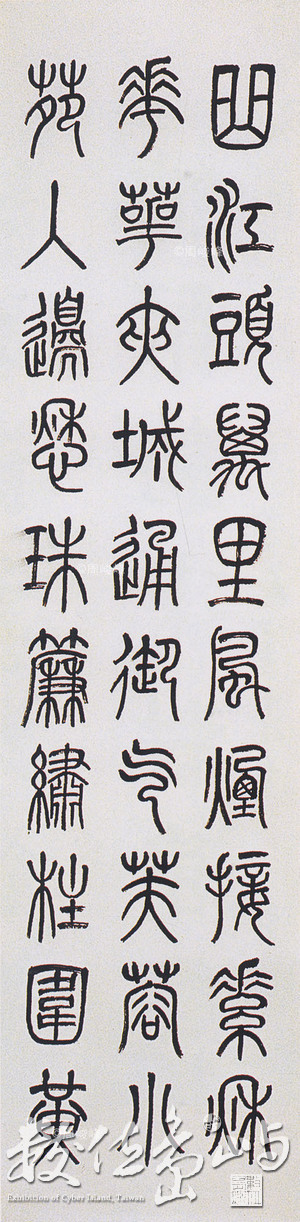 曲江頭萬里風煙接素秋
華萼夾城通御气芙蓉小
苑入邊愁珠簾繡柱圍黃
數位島嶼
Exhibition of Cyber Island, Taiwan